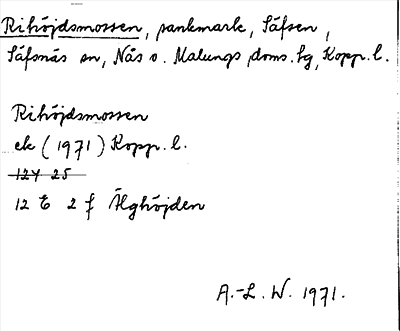 Rihöjdsmossen, sankmark, Säfsen,
Säfsnäs sn, Nås o. Malungs doms. hg, Kopp. l.
Rihöjdsmossen
ek (1971) Kopp. l.
12Y 25
12 E 2 f Älghöjden
A.-L. W. 1971.